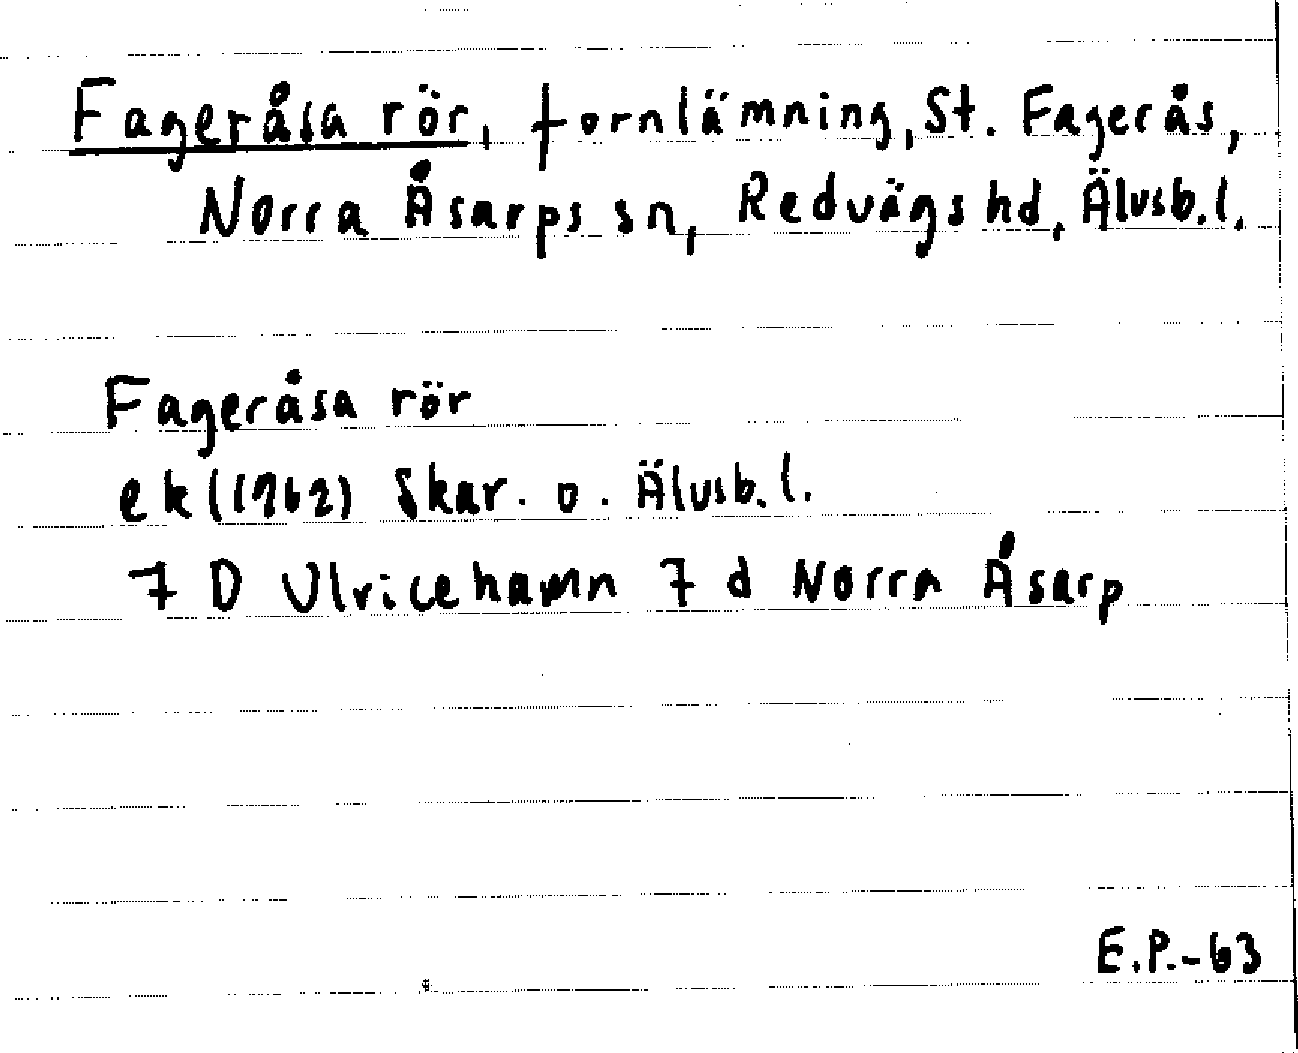 Fageråsa rör, fornlämning, St. Fagerås,
Norra Åsarps sn, Redvägs hd, Älvsb.l.
Fageråsa rör
ek (1962) Skar. o. Älvsb.l.
7 D Ulricehamn 7 d Norra Åsarp
E.P.-63